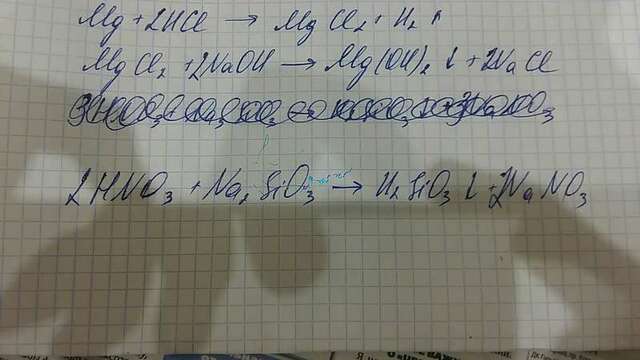 Mg + 2HCl → MgCl₂ + H₂ ↑
MgCl₂ + 2NaOH → Mg(OH)₂ ↓ + 2NaCl
2HNO₃ + Na₂SiO₃ → H₂SiO₃ ↓ + 2NaNO₃